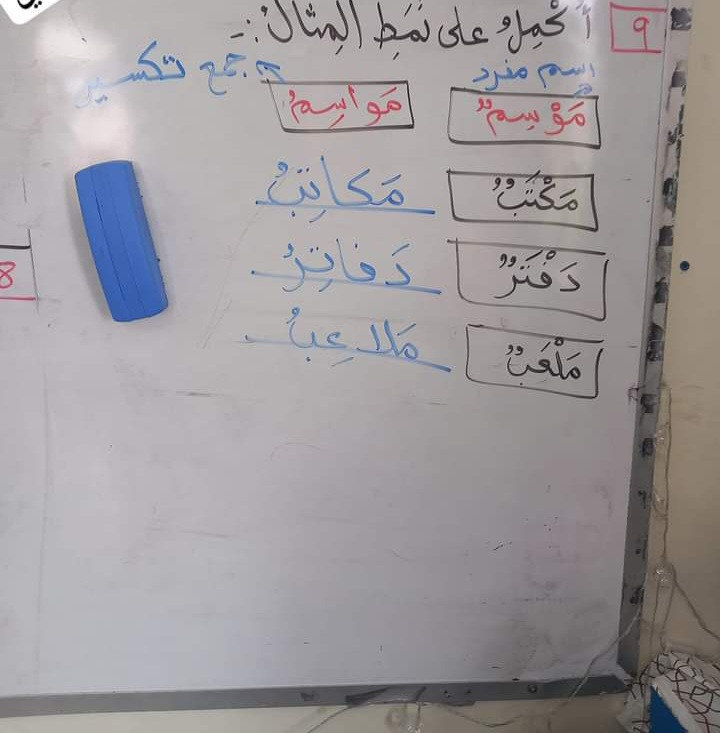 9 أُكْمِلُ على نَمَطِ المِثالِ :-
اسم مفرد جمع تكسير
مَوْسِمٌ مَواسِمُ
مَكْتَبٌ مَكاتِبُ
دَفْتَرٌ دَفاتِرُ
مَلْعَبٌ مَلاعِبُ
8